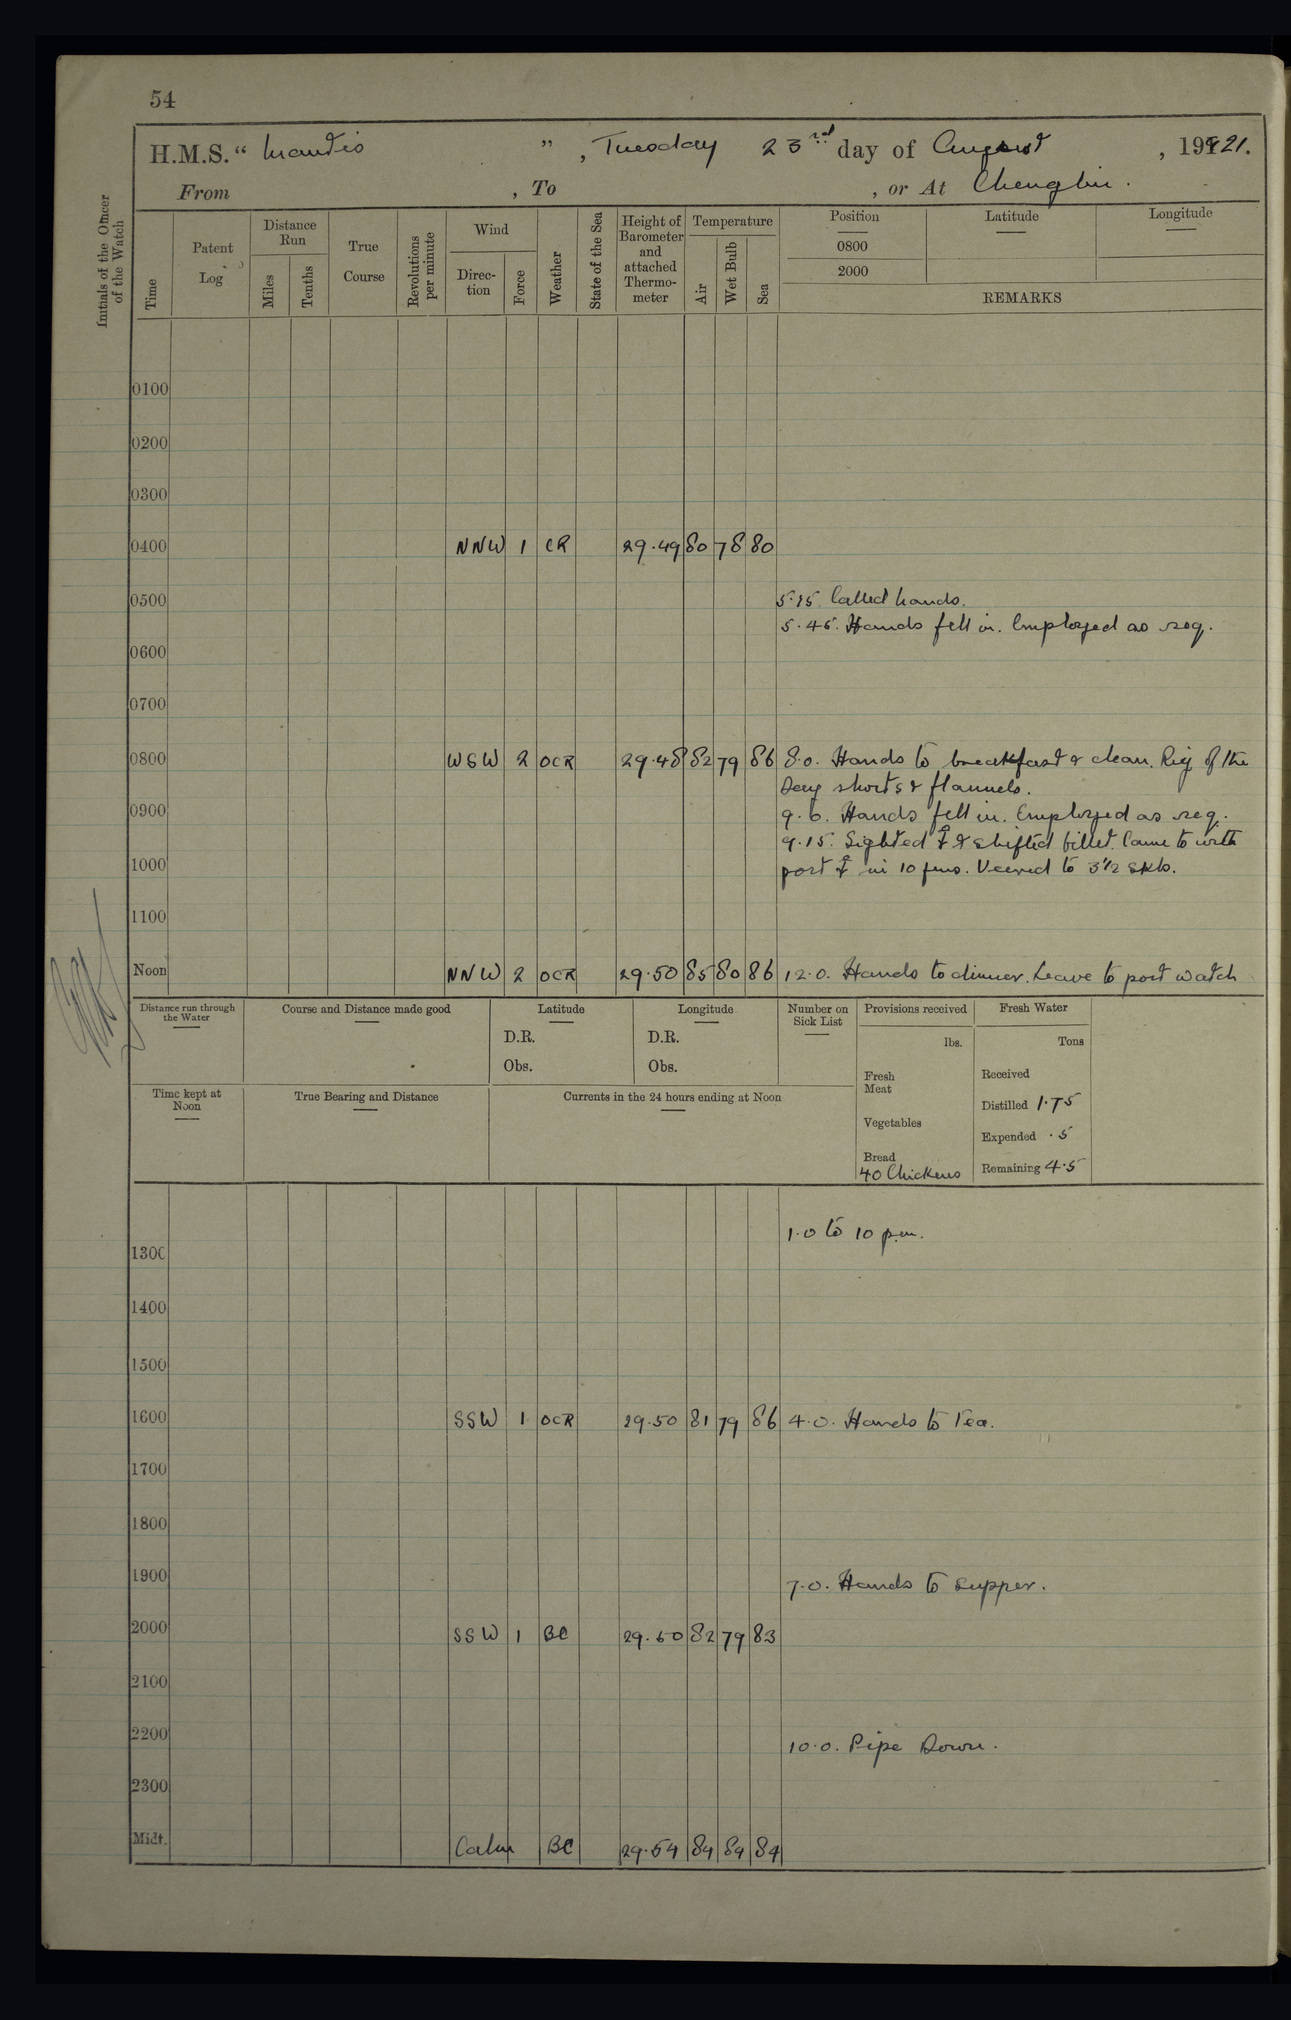 54
H.M.S. "Mantis", Tuesday 23rd day of August, 1921.
From , To , or At Chenglin.
Initials of the Officer of the Watch
Time
Patent Log
Distance Run
Miles
Tenths
True Course
Revolutions per minute
Wind
Direc-tion
Force
Weather
State of the Sea
Height of Barometer and attached Thermo-meter
Temperature
Air
Wet Bulb
Sea
Position
Latitude
Longitude
0800
2000
REMARKS
0100
0200
0300
0400 NNW 1 CR 29.49 80 78 80
0500 5.15 Called hands.
5.45. Hands fell in. Employed as req.
0600
0700
0800 WSW 2 OCR 29.48 82 79 86 8.0. Hands to breakfast & clean. Rig of the
Day shorts & flannels.
0900 9.0. Hands fell in. Employed as req.
9.15. Sighted ⚓ & shifted billet. Came to with
1000 port ⚓ in 10 fms. Veered to 3 1/2 skls.
1100
Noon NNW 2 OCR 29.50 85 80 86 12.0. Hands to dinner. Leave to port watch
Distance run through the Water
Course and Distance made good
Latitude
D.R.
Obs.
Longitude
D.R.
Obs.
Number on Sick List
Provisions received
lbs.
Fresh Meat
Vegetables
Bread
40 Chickens
Fresh Water
Tons
Received
Distilled 1.75
Expended .5
Remaining 4.5
Time kept at Noon
True Bearing and Distance
Currents in the 24 hours ending at Noon
1.0 to 10 p.m.
1300
1400
1500
1600 SSW 1 OCR 29.50 81 79 86 4.0. Hands to Tea.
1700
1800
1900 7.0. Hands to supper.
2000 SSW 1 BC 29.50 82 79 83
2100
2200 10.0. Pipe Down.
2300
Midt. Calm BC 29.54 84 84 84